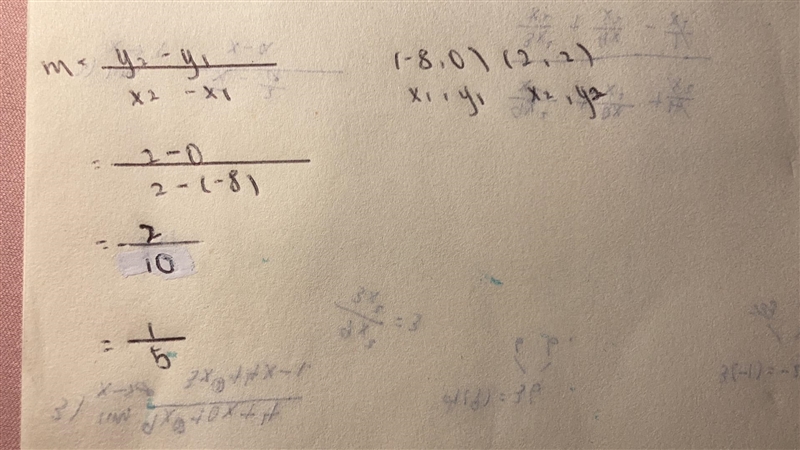 m = y₂ - y₁ / x₂ - x₁
(-8,0) (2,2)
x₁, y₁ x₂, y₂
= 2-0 / 2-(-8)
= 2 / 10
= 1 / 5